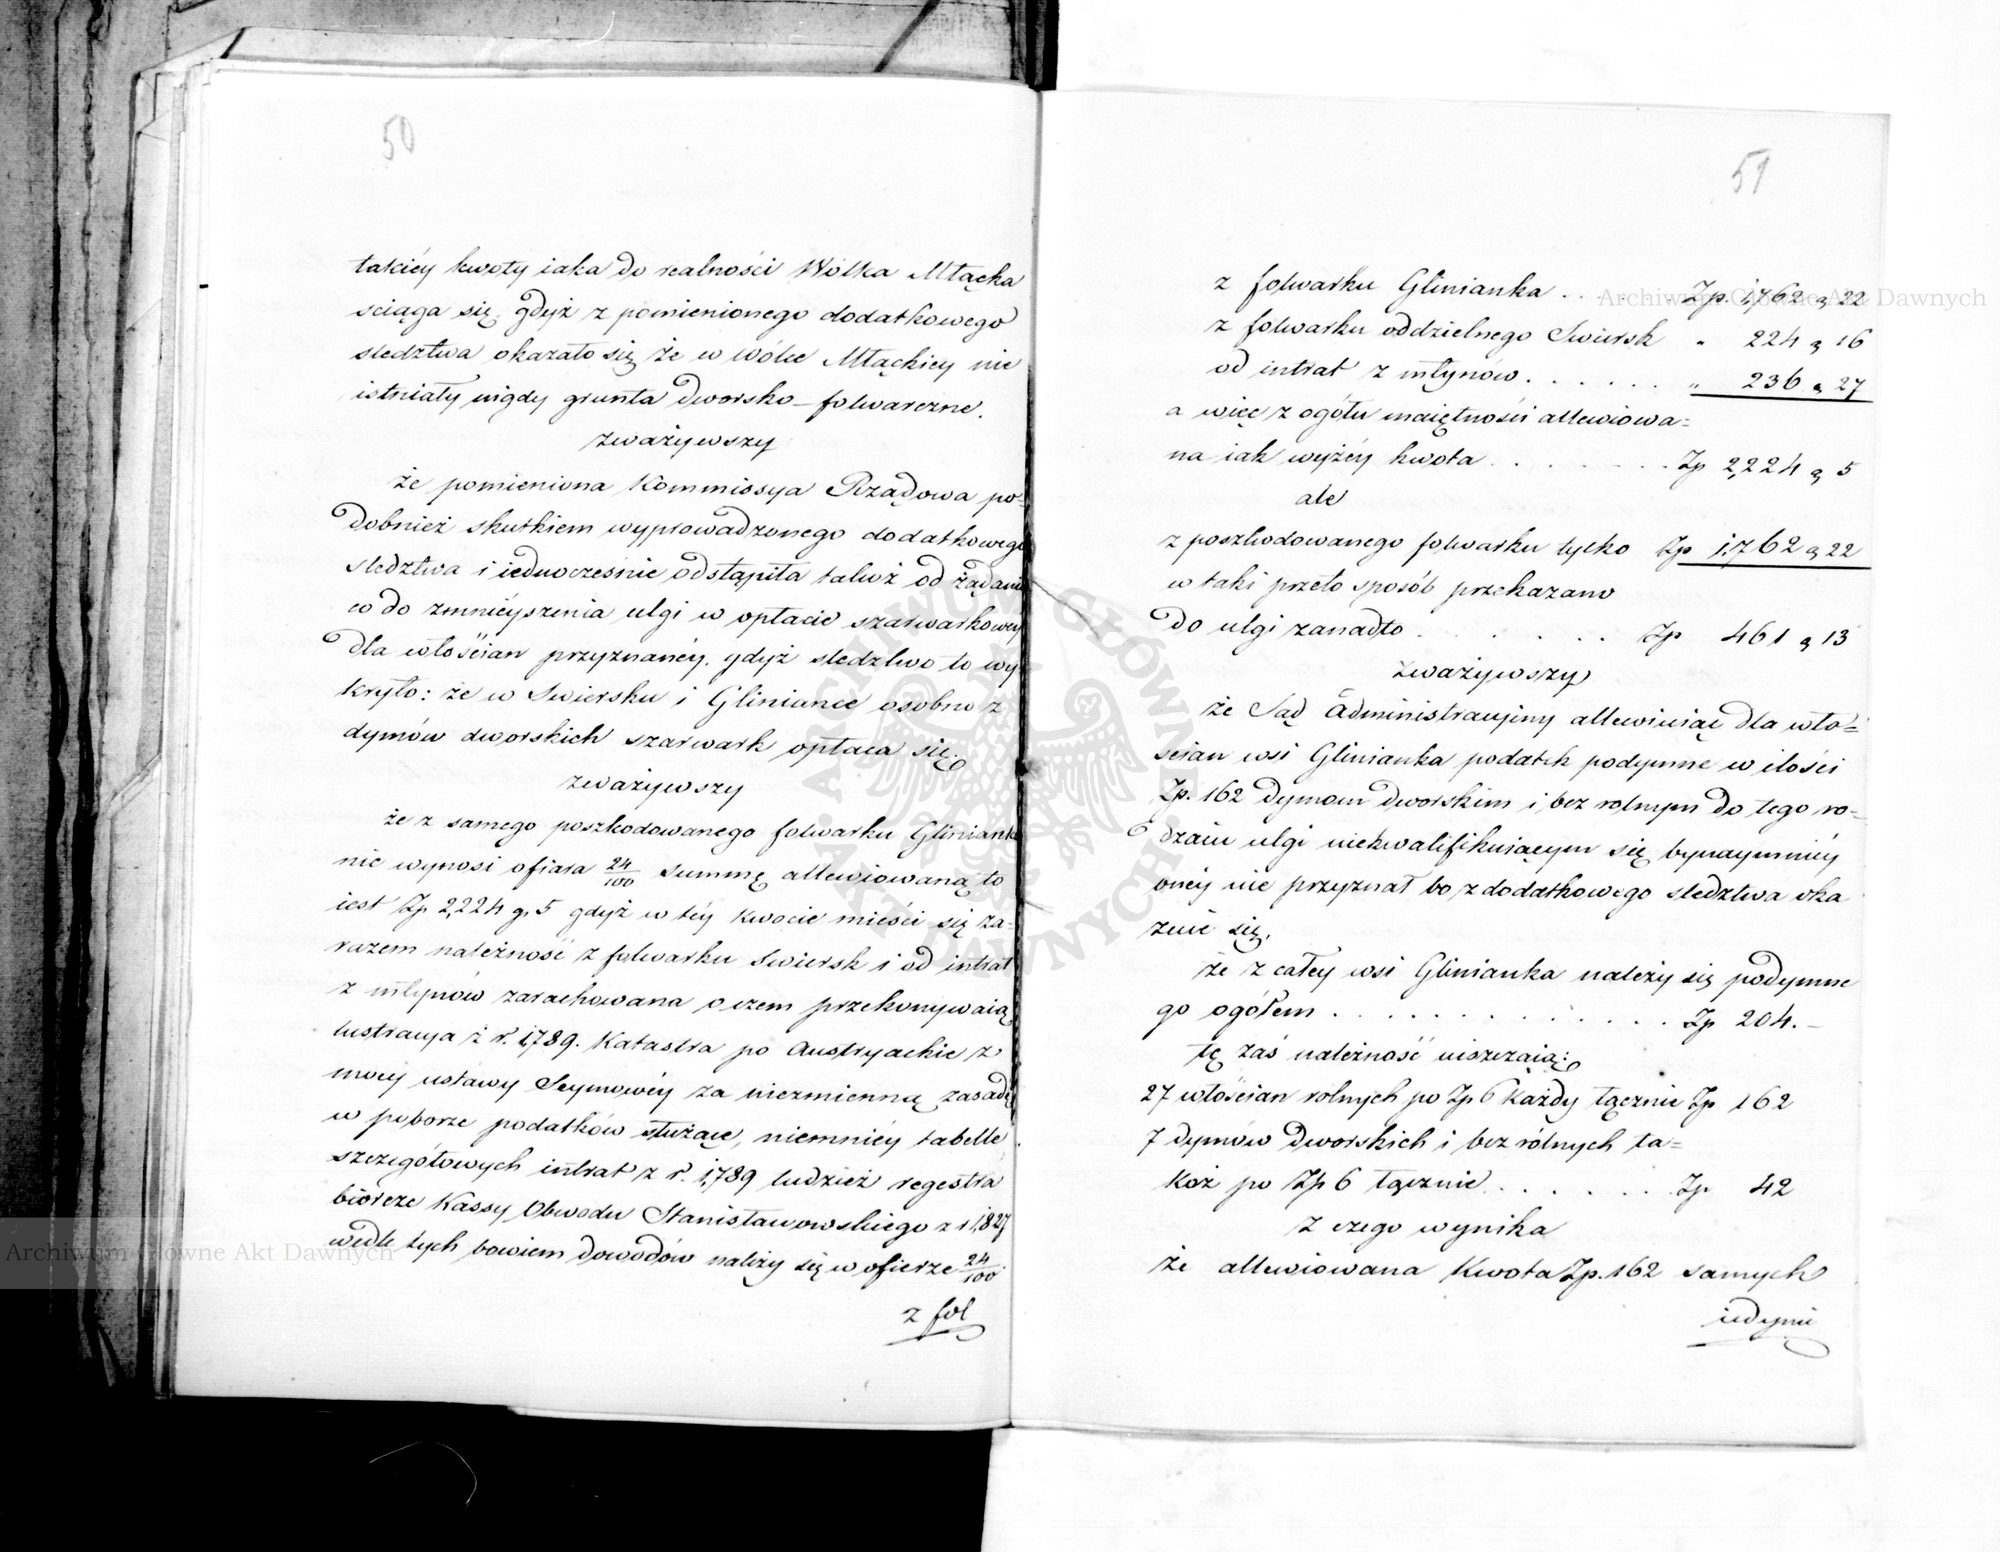 50
takiéy kwoty iaka do realności Wólka Młącka
sciąga się, gdyż z pomienionego dodatkowego
sledztwa okazało się że w Wólce Młąckiey nie
istniały nigdy grunta dworsko-folwarczne.
zważywszy
że pomieniona Kommissya Rządowa po-
dobnież skutkiem wyprowadzonego dodatkowego
sledztwa i iednocześnie odstąpiła takoż od żądania
co do zmnieyszenia ulgi w opłacie szarwarkowéy
dla włościan przyznanéy, gdyż sledztwo to wy
kryło: że w Swiersku i Gliniance osobno z
dymów dworskich szarwark opłaca się.
zważywszy
że z samego poszkodowanego folwarku Glinianka
nie wynosi ofiara 24/100 summę allewiowaną to
iest Zp 2,224 g. 5 gdyż w téy kwocie mieści się za-
razem należność z folwarku Swiersk i od intrat
z młynów zarachowana o czem przekonywaią
lustracya z r. 1,789. Katastra po Austryackie z
mocy ustawy Seymowéy za niezmienną zasadę
w poborze podatków służące, niemniéy tabelle
szczegółowych intrat z r. 1,789 tudzież regestra
biorcze Kassy Obwodu Stanisławowskiego z r 1,827
wedle tych bowiem dowodów należy się w ofierze 24/100
z fol
51
z folwarku Glinianka . . Zp. 1,762 g 22
z folwarku oddzielnego Swiersk " 224 g 16
od intrat z młynów . . . . . . " 236 g 27
a więc z ogółu maiętności allewiowa=
na iak wyżéy kwota . . . . . . . Zp 2,224 g 5
ale
z poszkodowanego folwarku tylko Zp 1,762 g 22
w taki przeto sposób przekazano
do ulgi zanadto . . . . . . . Zp 461 g 13
zważywszy
że Sąd Administracyiny allewiuiąc dla wło=
ścian wsi Glinianka podatek podymne w ilości
Zp. 162 dymom dworskim i bez rolnym do tego ro-
dzaiu ulgi niekwalifikuiącym się bynaymniéy
onéy nie przyznał bo z dodatkowego sledztwa oka
zuie się,
że z całey wsi Glinianka należy się podymne
go ogółem . . . . . . . . . . . . . Zp 204. –
tę zaś należność uiszczaią:
27 włościan rolnych po Zp 6 każdy łącznie Zp 162
7 dymów dworskich i bez rólnych ta=
koż po Zp 6 łącznie . . . . . . . Zp 42
z czego wynika
że allewiowana Kwota Zp. 162 samych
iedynie
Archiwum Główne Akt Dawnych
Archiwum Główne Akt Dawnych
ARCHIWUM GŁÓWNE AKT DAWNYCH